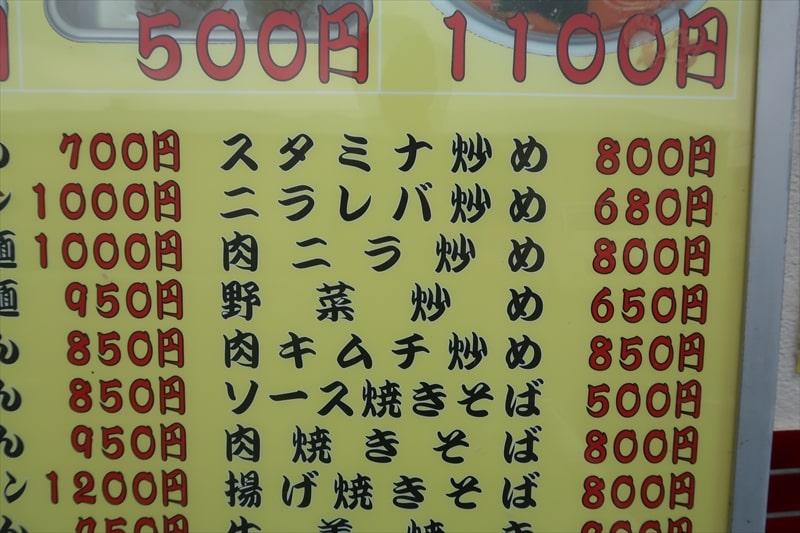 500円 1100円
700円 スタミナ炒め 800円
1000円 ニラレバ炒め 680円
1000円 肉ニラ炒め 800円
950円 野菜炒め 650円
850円 肉キムチ炒め 850円
850円 ソース焼きそば 500円
950円 肉焼きそば 800円
1200円 揚げ焼きそば 800円